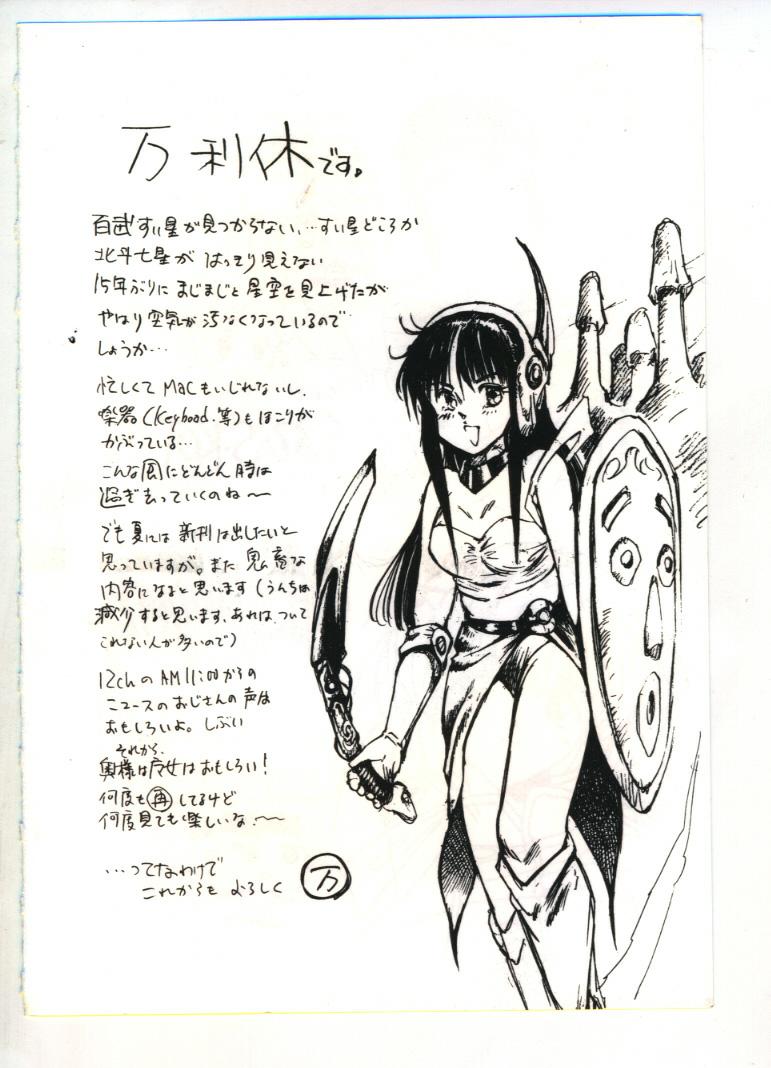 万利休です。
百武すい星が見つからない、…すい星どころか
北斗七星が はっきり見えない
15年ぶりに まじまじと 星空を見上げたが
やはり空気が汚なくなっているので
しょうか…
忙しくて Macもいじれないし、
楽器(Keyboad.等)もほこりが
かぶっている…
こんな風にどんどん時は
過ぎ去っていくのね〜
でも夏には 新刊は出したいと
思っていますが。また 鬼畜な
内容になると思います(うんちは
減少すると思います、あれは、ついて
これない人が多いので)
12chのAM11:00からの
ニュースのおじさんの声は
おもしろいよ。しぶい
それから、
奥様は魔女はおもしろい!
何度も再してるけど
何度見ても楽しいな.〜
…ってなわけで
これからも よろしく
万